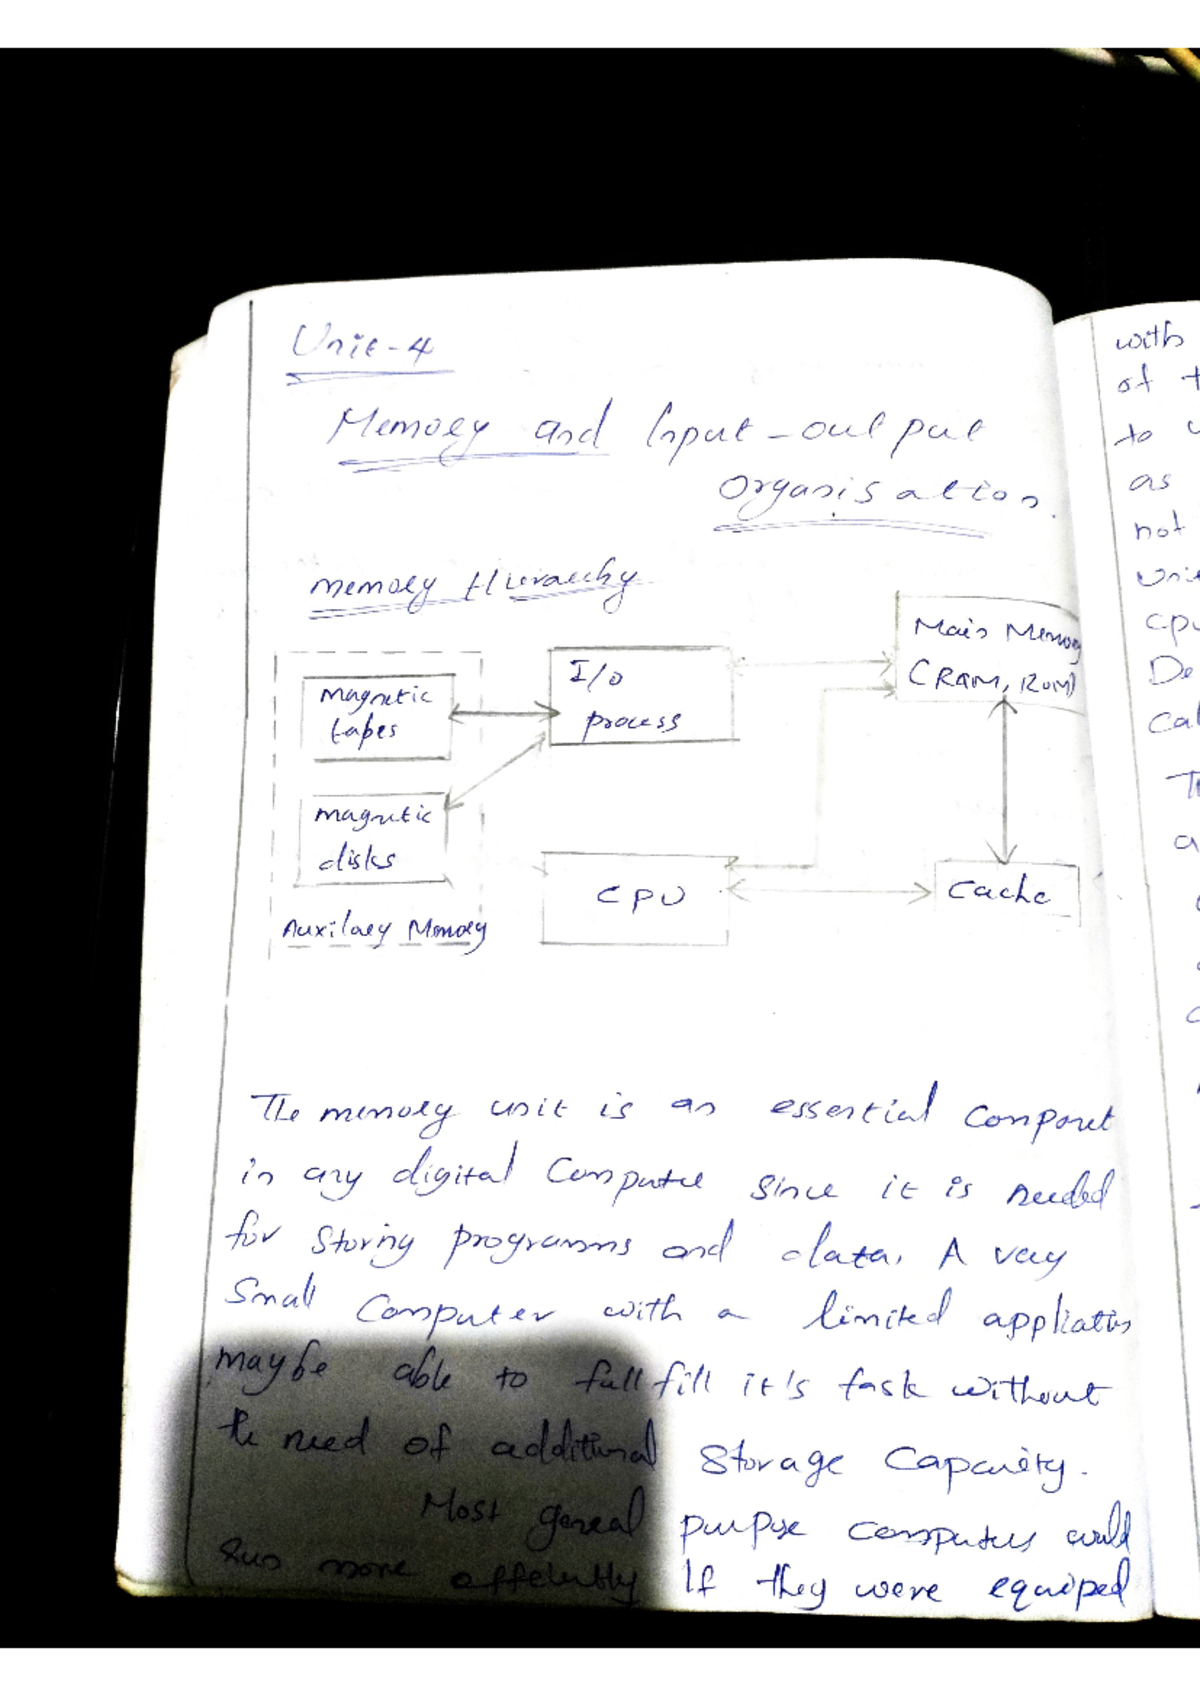 Unit-4
Memory and Input-output
Organisation.
memory Hierarchy
Magnetic
tapes
I/O
process
Main Memory
(RAM, ROM)
magnetic
disks
CPU
Cache
Auxilary Memory
The memory unit is an essential Componet
in any digital Computer Since it is needed
for Storing programms and data. A very
Small Computer with a limited application
maybe able to fullfill it's task without
the need of additional Storage Capacity.
Most general purpose computers would
run more effeiently If they were equiped
with
of t
to
as
not
cpu
De